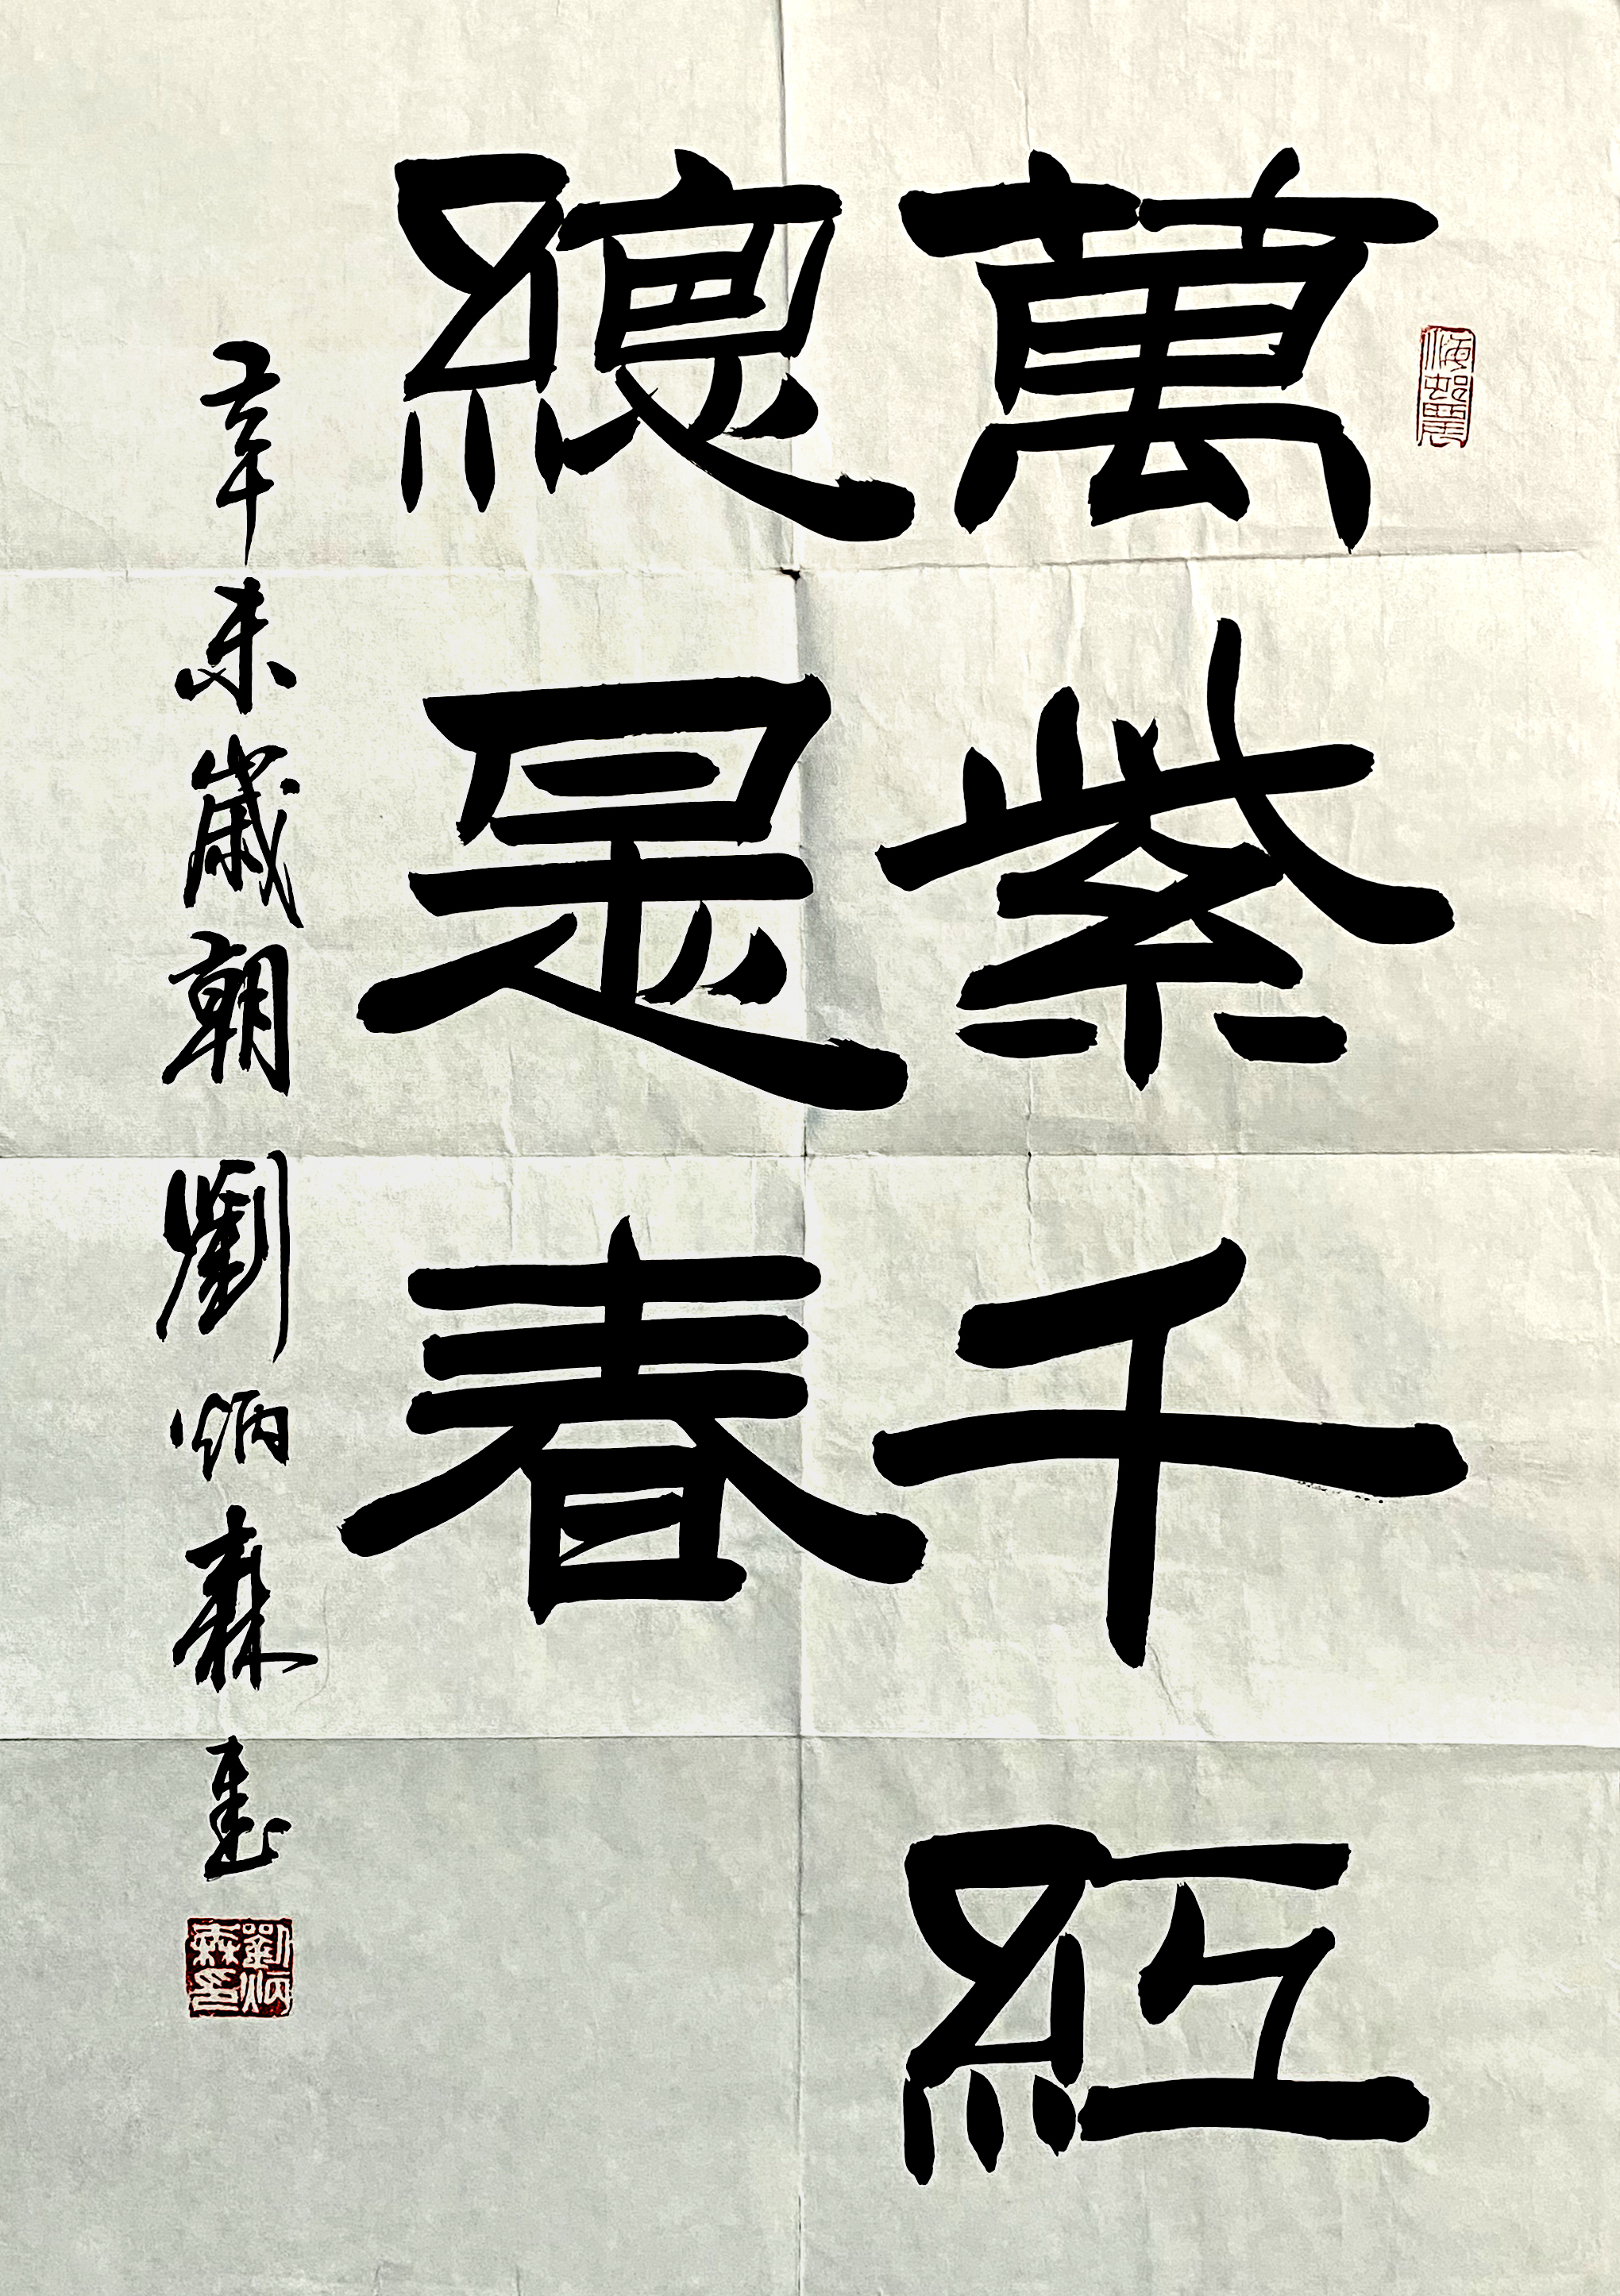 萬紫千紅
總是春
辛未歲朝 劉炳森書
劉炳森印